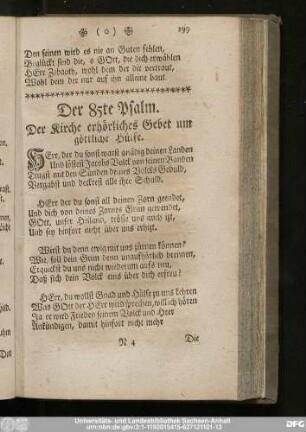 ❋ (o) ❋ 199
Den seinen wird es nie an Guten fehlen,
Beglückt sind die, o GOtt, die dich erwählen
HErr Zebaoth, wohl dem der dir vertraut,
Wohl dem der nur auf ihn alleine baut.
Der 85te Psalm.
Der Kirche erhörliches Gebet um
göttliche Hülfe.
HErr, der du sonst warst gnädig deinen Landen
Und lösest Jacobs Volck von seinen Banden
Trugst mit den Sünden deines Volcks Gedult,
Vergabst und deckest alle ihre Schuld.
HErr der du sonst all deinen Zorn geendet,
Und dich von deines Zornes Grim gewendet,
GOtt, unser Heiland, tröste uns auch itzt,
Und sey hinfort nicht über uns erhitzt.
Wirst du denn ewig mit uns zürnen können?
Wie, soll dein Grim denn unaufhörlich brennen,
Erquickst du uns nicht wiederum aufs neu,
Daß sich dein Volck eins über dich erfreu?
HErr, du wollst Gnad und Hülfe zu uns kehren
Was GOtt der HErr wird sprechen, will ich hören
Ja er wird Frieden seinem Volck und Heer
Ankündigen, damit hinfort nicht mehr
N 4 Die
Universitäts- und Landesbibliothek Sachsen-Anhalt
urn:nbn:de:gbv:3:1-1192015415-627121101-13
DFG